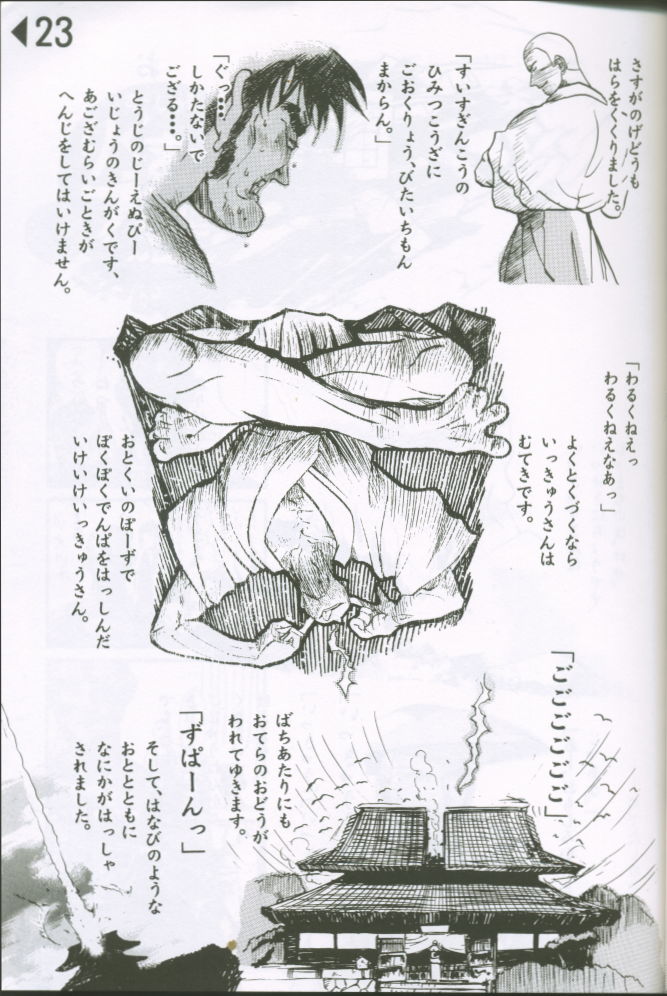 23
さすがのげどうも
はらをくくりました。
「すいすぎんこうの
ひみつこうざに
ごおくりょう、びたいちもん
まからん。」
「ぐっ…
しかたないで
ござる…。」
とうじのじーえぬぴー
いじょうのきんがくです、
あござむらいごときが
へんじをしてはいけません。
「わるくねえっ
わるくねえなあっ」
よくとくづくなら
いっきゅうさんは
むてきです。
おとくいのぽーずで
ぽくぽくでんぱをはっしんだ
いけいけいっきゅうさん。
「ごごごごごごご」
ばちあたりにも
おてらのおどうが
われてゆきます。
「ずぱーんっ」
そして、はなびのような
おととともに
なにかがはっしゃ
されました。